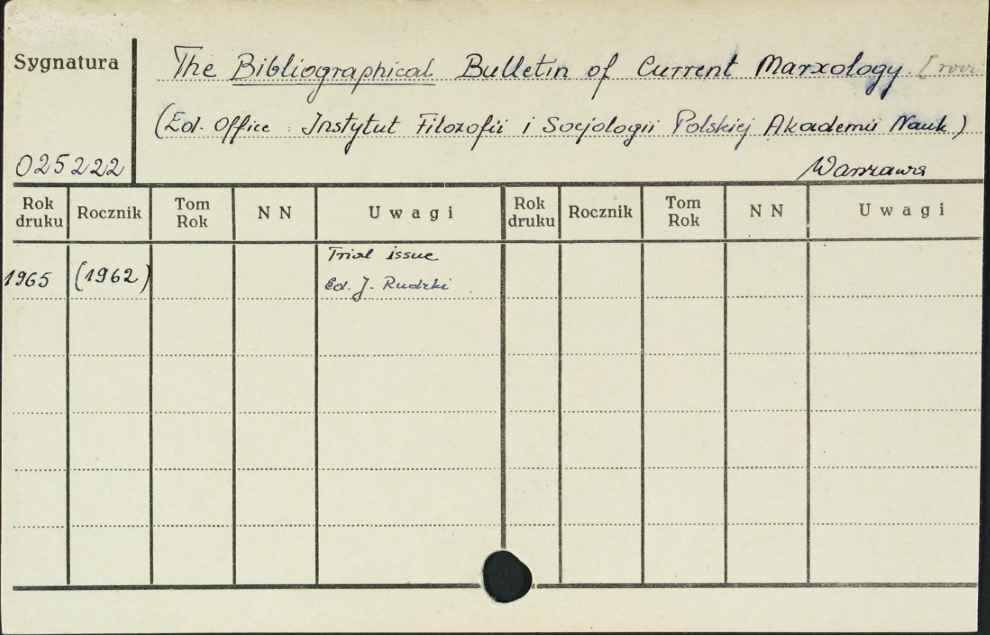 Sygnatura
The Bibliographical Bulletin of Current Marxology
(Ed. Office : Instytut Filozofii i Socjologii Polskiej Akademii Nauk)
025222
Warszawa
Rok druku Rocznik Tom Rok N N Uwagi Rok druku Rocznik Tom Rok N N Uwagi
Trial issue
1965 (1962) Ed. J. Rudzki